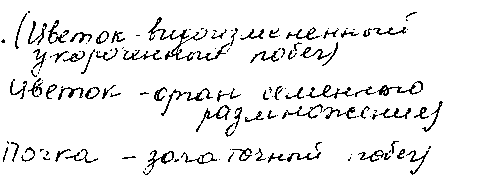 (Цветок - видоизмененный
укороченный побег)
Цветок - орган семенного
размножения)
Почка - зачаточный побег)